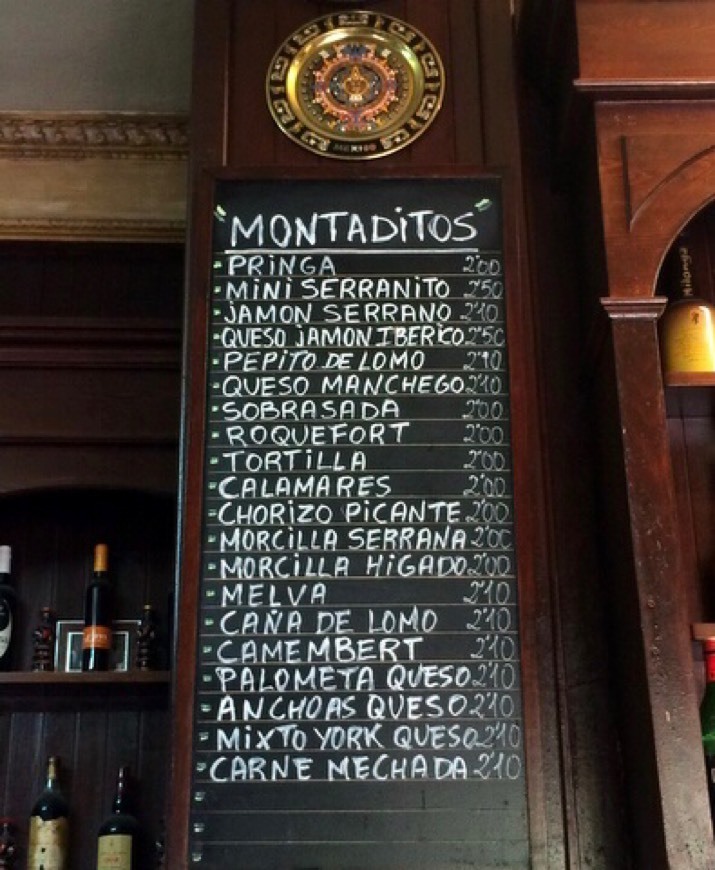 MEXICO
"MONTADiTOS"
PRiNGA 2'00
MiNi SERRANiTO 2'50
JAMON SERRANO 2'10
QUESO JAMON IBERiCO 2'50
PEPiTO DE LOMO 2'10
QUESO MANCHEGO 2'10
SOBRASADA 2'00
ROQUEFORT 2'00
TORTiLLA 2'00
CALAMARES 2'00
CHORiZO PiCANTE 2'00
MORCiLLA SERRANA 2'00
MORCiLLA HiGADO 2'00
MELVA 2'10
CAÑA DE LOMO 2'10
CAMEMBERT 2'10
PALOMETA QUESO 2'10
ANCHOAS QUESO 2'10
MiXTO YORK QUESO 2'10
CARNE MECHADA 2'10
Milonga